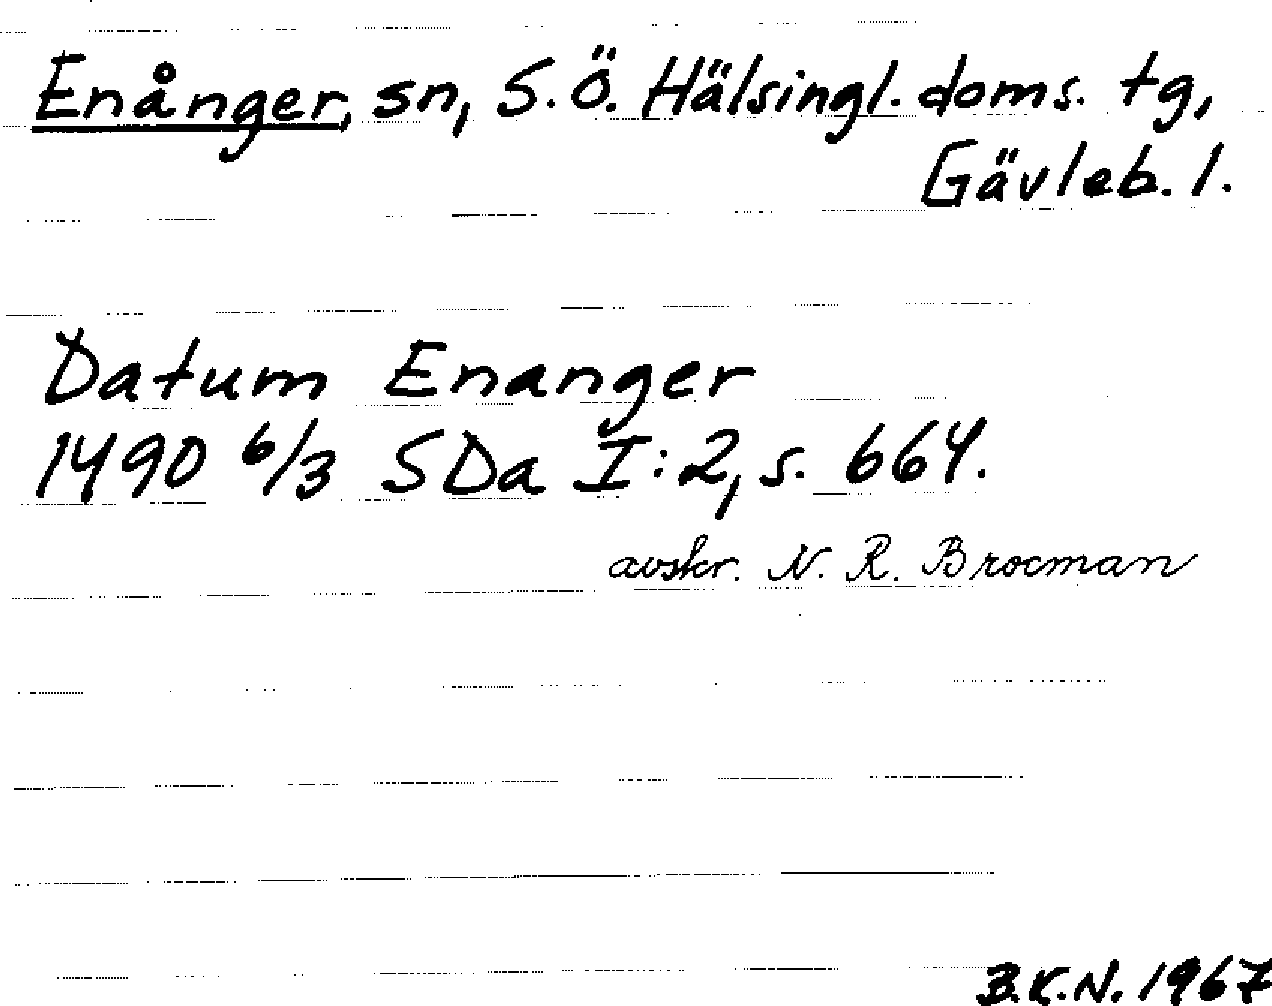 Enånger, sn, S.Ö. Hälsingl. doms. tg,
Gävleb. l.
Datum Enanger
1490 6/3 SDa I:2, s. 664.
avskr. N. R. Brocman
B.K.N. 1967